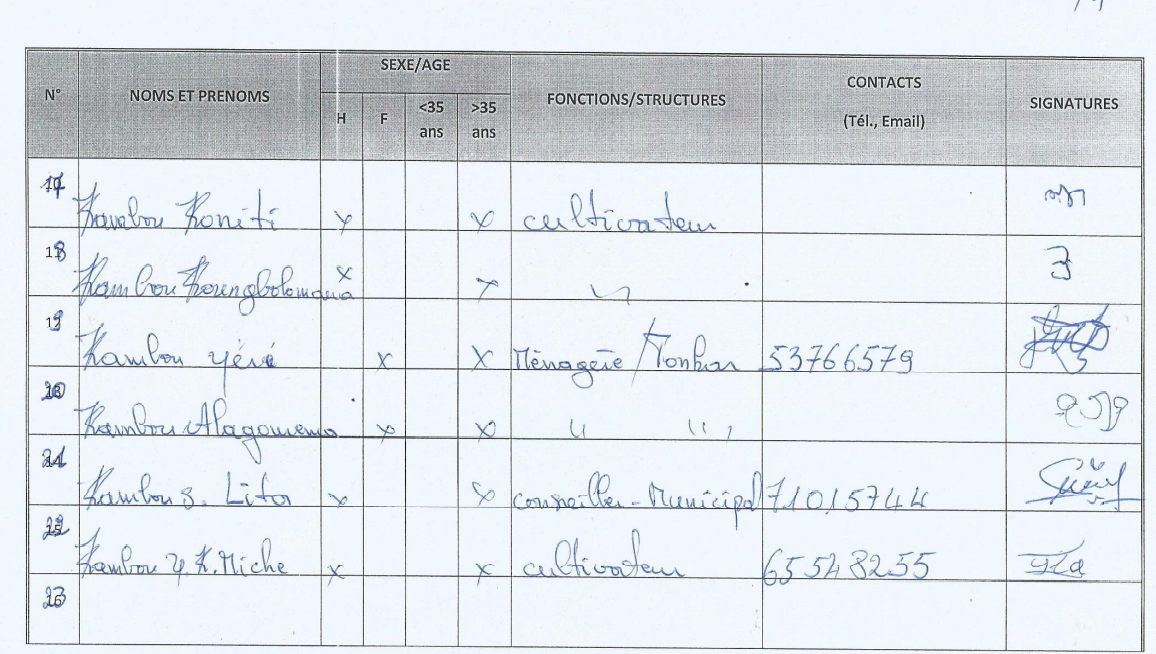 SEXE/AGE
N° NOMS ET PRENOMS H F <35 ans >35 ans FONCTIONS/STRUCTURES CONTACTS (Tél., Email) SIGNATURES
17 Kambou Koniti x x cultivateur
18 Kambou x x
19 Kambou Yéré x x Ménagère / 53766579
20 Kambou x x " "
21 Kambou S. x x conseiller-Municipal 71015744
22 Kambou Y.K.Miche x x cultivateur 65548255
23